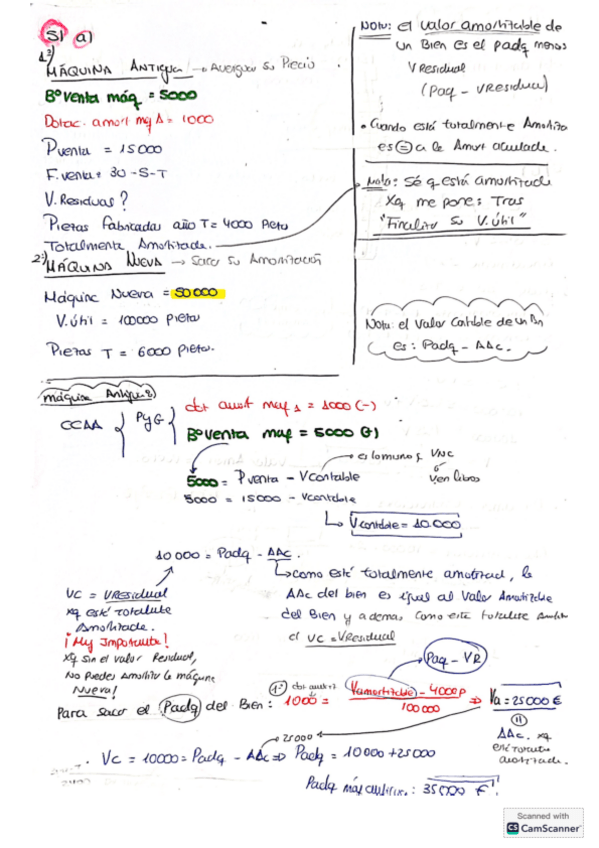 S1 a)
1º)
MÁQUINA ANTIGUA → Averiguar su Precio
Bº venta máq = 5000
Dotac. amort mq A = 1000
Pventa = 15000
F. venta = 30-S-T
V. Residual?
Piezas Fabricadas año T = 4000 Piezas
Totalmente Amortizada.
2º) MÁQUINA NUEVA → Sacar su Amortización
Máquina Nueva = 50000
V. útil = 100000 piezas
Piezas T = 6000 piezas.
Nota: el valor amortizable de
un Bien es el padq menos
VResidual
(Paq - VResidual)
• Cuando está totalmente Amortiza
es = a la Amort acumulada.
Nota: Sé q está amortizada
Xq me pone: Tras
"Finalizar su V. útil"
Nota: el Valor Contable de un Bn
es: Padq - AAc.
máquina Antigua
CCAA { PyG {
dot amort maq 1 = 1000 (-)
Bº venta maq = 5000 (+)
es lo mismo q VNC
ó
V en libros
5000 = Pventa - VContable
5000 = 15000 - Vcontable
Vcontable = 10.000
10 000 = Padq - AAc.
como está totalmente amortizad, la
AAc del bien es igual al Valor Amortizable
del Bien y además, como está totalmente
el VC = VResidual
VC = VResidual
xq está Totalmente
Amortizada.
¡My Importante!
Xq sin el valor Residual,
No puedes Amortizar la máquina
Nueva!
Paq - VR
Para sacar el Padq del Bien:
1000 = Vamortizable · 4000p
100 000
⇒ Va = 25000 €
=
AAc. xq
está totalmente
amortizada.
25000
. VC = 10000 = Padq - AAc ⇒ Padq = 10000 + 25000
Padq máq antigua: 35000 €
Scanned with
CS CamScanner